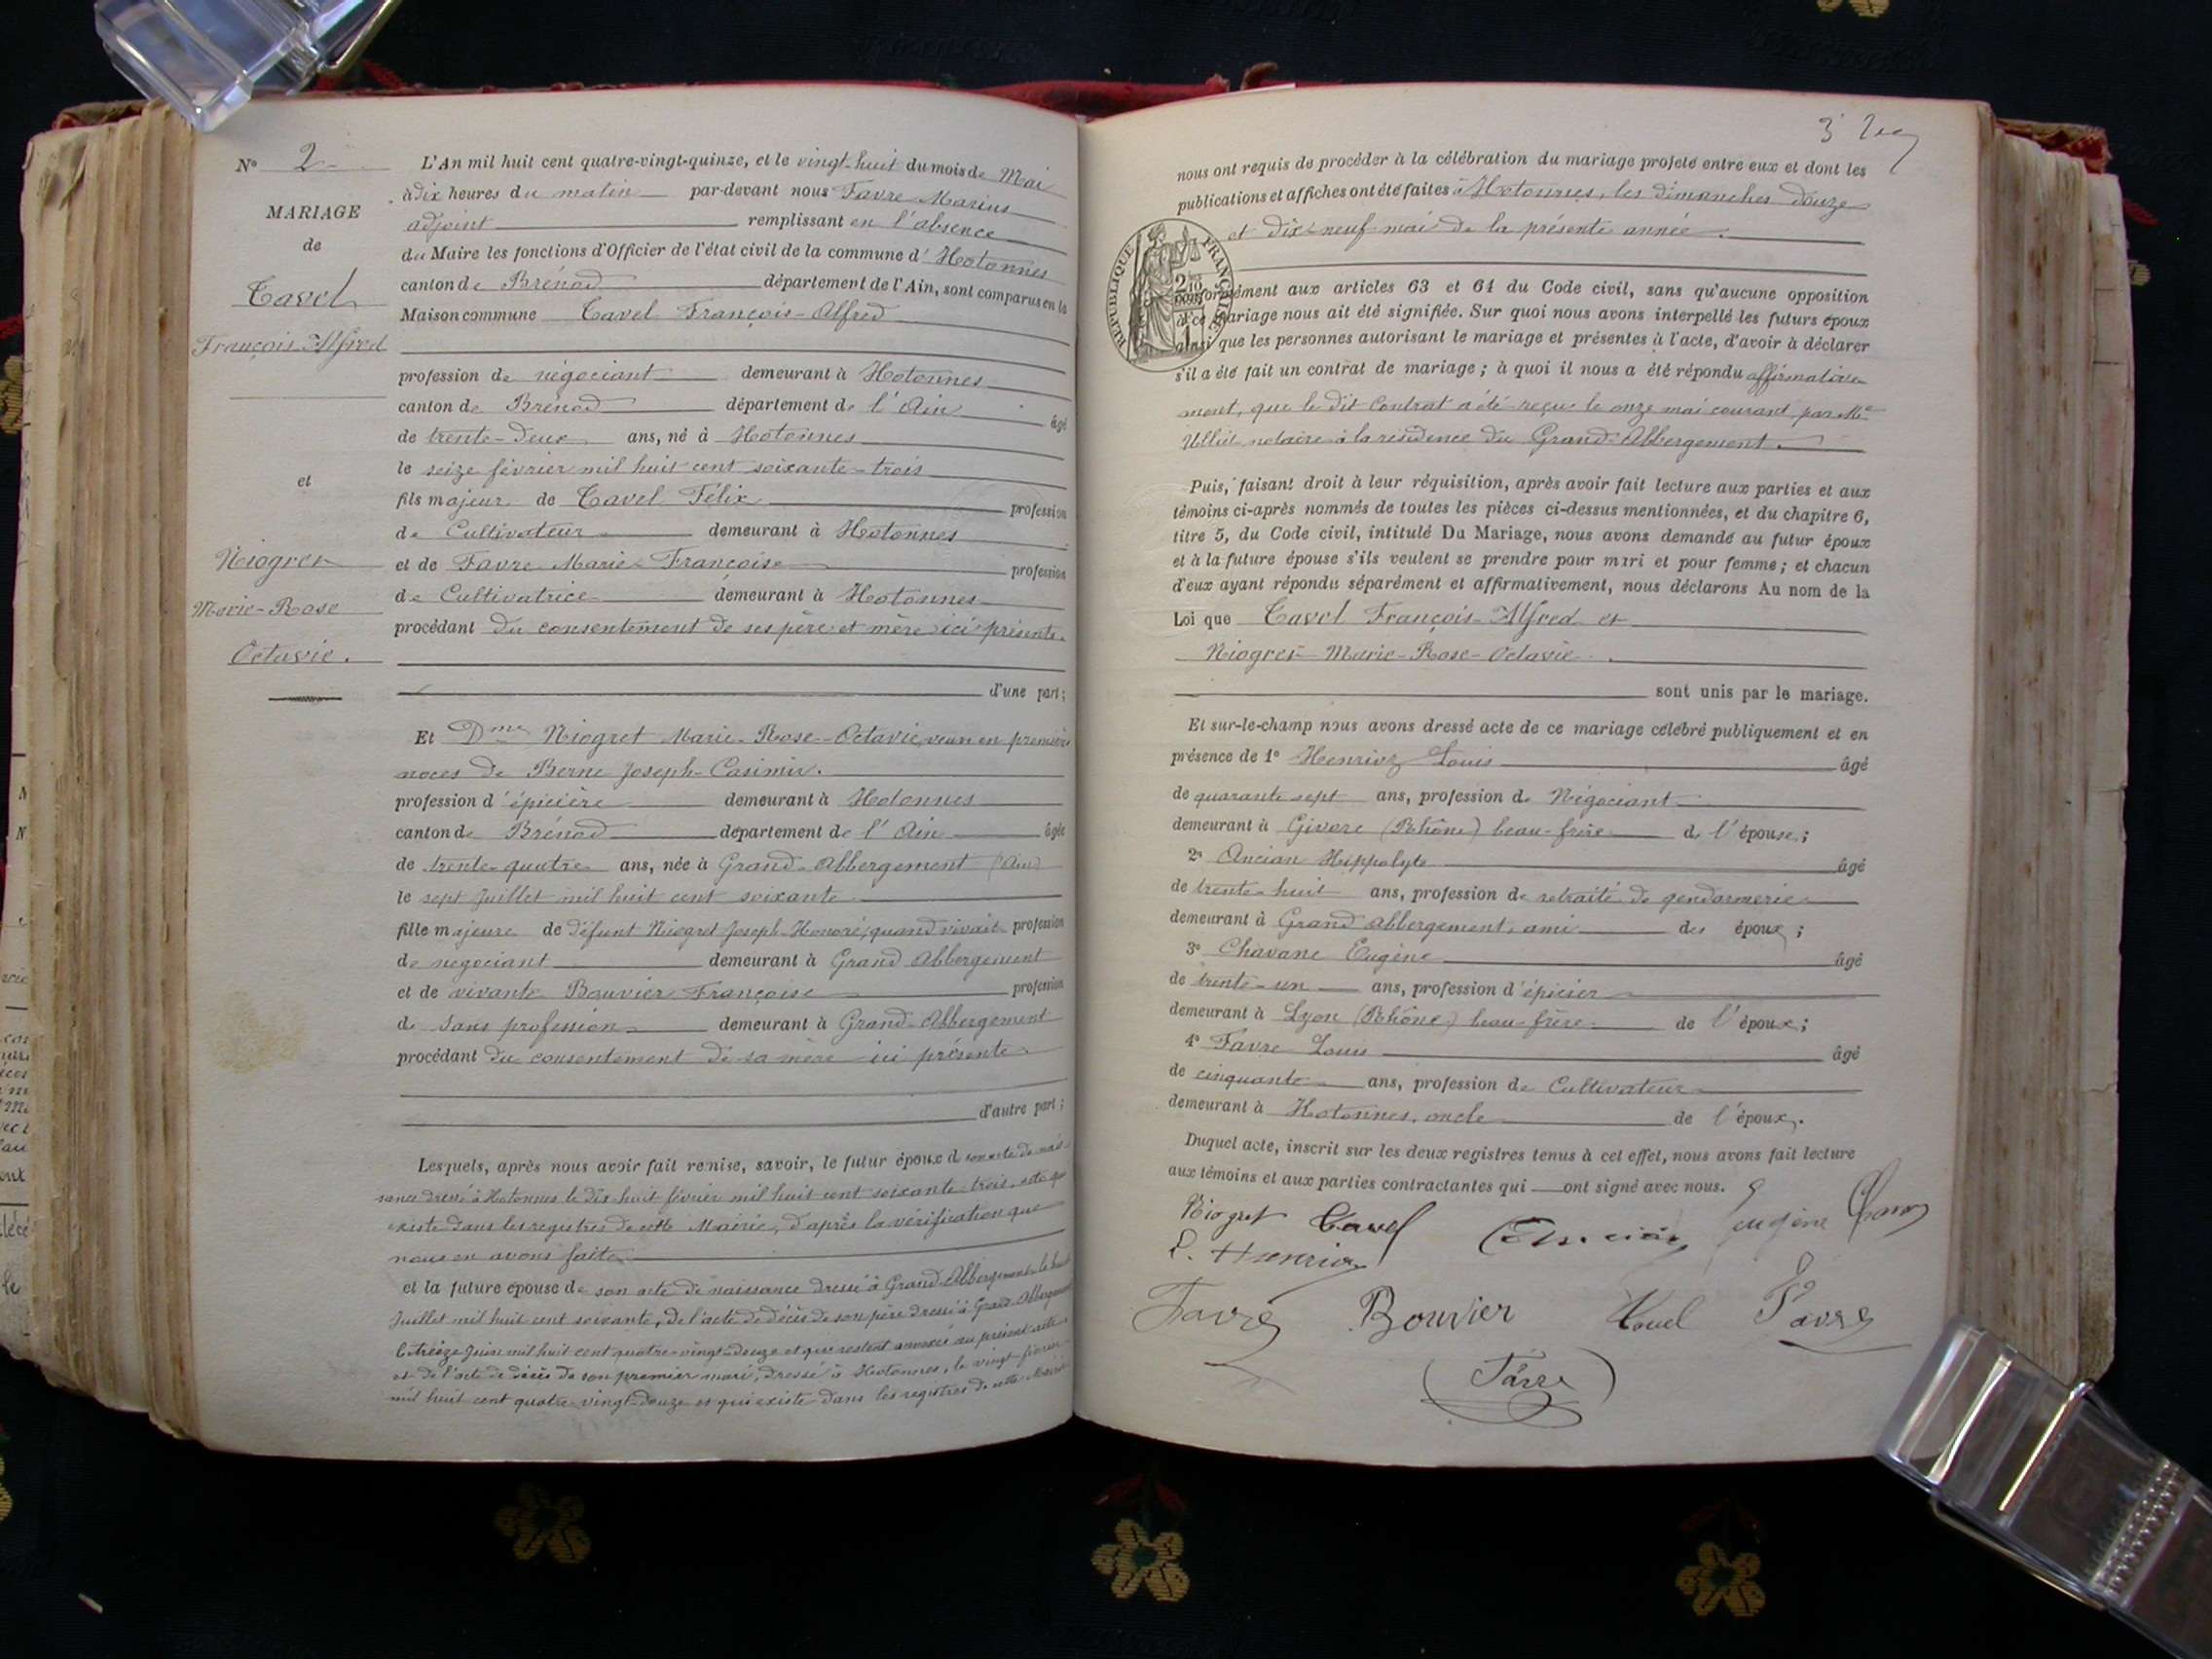 N° 2
MARIAGE
de
Tavel
François-Alfred
et
Niogret
Marie-Rose
Octavie.
L'An mil huit cent quatre-vingt-quinze, et le vingt-huit du mois de Mai
à dix heures du matin par-devant nous Favre Marius
adjoint remplissant en l'absence
du Maire les fonctions d'Officier de l'état civil de la commune d' Hotonnes
canton de Brénod département de l'Ain, sont comparus en la
Maison commune Tavel François-Alfred
profession de négociant demeurant à Hotonnes
canton de Brénod département de l'Ain âgé
de trente-deux ans, né à Hotonnes
le seize février mil huit cent soixante-trois
fils majeur de Tavel Félix profession
de Cultivateur demeurant à Hotonnes
et de Favre Marie Françoise profession
de Cultivatrice demeurant à Hotonnes
procédant du consentement de ses père et mère ici présents
d'une part;
Et Dme Niogret Marie-Rose-Octavie, veuve en premières
noces de Berne Joseph-Casimir.
profession d'épicière demeurant à Hotonnes
canton de Brénod département de l'Ain âgée
de trente-quatre ans, née à Grand-Abbergement (Ain)
le sept Juillet mil huit cent soixante
fille majeure de défunt Niogret Joseph-Honoré, quand vivait profession
de négociant demeurant à Grand Abbergement
et de vivante Bouvier Françoise profession
de sans profession demeurant à Grand-Abbergement
procédant du consentement de sa mère ici présente
d'autre part;
Lesquels, après nous avoir fait remise, savoir, le futur époux d son acte de nais-
sance dressé à Hotonnes le dix huit février mil huit cent soixante-trois, acte qui
existe dans les registres de cette Mairie, d'après la vérification que
nous en avons faite
et la future épouse de son acte de naissance dressé à Grand-Abbergement le huit
Juillet mil huit cent soixante, de l'acte de décès de son père dressé à Grand-Abbergement
le treize Juin mil huit cent quatre-vingt-douze et qui restent annexés au présent acte
et de l'acte de décès de son premier mari, dressé à Hotonnes, le vingt février
mil huit cent quatre-vingt-douze et qui existe dans les registres de cette Mairie
3
nous ont requis de procéder à la célébration du mariage projeté entre eux et dont les
publications et affiches ont été faites à Hotonnes, les dimanches douze
et dix-neuf mai de la présente année.
RÉPUBLIQUE FRANÇAISE
conformément aux articles 63 et 64 du Code civil, sans qu'aucune opposition
à ce mariage nous ait été signifiée. Sur quoi nous avons interpellé les futurs époux
ainsi que les personnes autorisant le mariage et présentes à l'acte, d'avoir à déclarer
s'il a été fait un contrat de mariage; à quoi il nous a été répondu affirmative-
ment, que le dit Contrat a été reçu le onze mai courant par Me
notaire à la résidence du Grand-Abbergement.
Puis, faisant droit à leur réquisition, après avoir fait lecture aux parties et aux
témoins ci-après nommés de toutes les pièces ci-dessus mentionnées, et du chapitre 6,
titre 5, du Code civil, intitulé Du Mariage, nous avons demandé au futur époux
et à la future épouse s'ils veulent se prendre pour mari et pour femme; et chacun
d'eux ayant répondu séparément et affirmativement, nous déclarons Au nom de la
Loi que Tavel François-Alfred et
Niogret Marie-Rose-Octavie
sont unis par le mariage.
Et sur-le-champ nous avons dressé acte de ce mariage célébré publiquement et en
présence de 1° Henrioz Louis âgé
de quarante sept ans, profession de Négociant
demeurant à Givors (Rhône) beau-frère de l'épouse;
2° Ancian Hippolyte âgé
de trente-huit ans, profession de retraité de gendarmerie
demeurant à Grand Abbergement, ami des époux;
3° Chavane Eugène âgé
de trente-un ans, profession d'épicier
demeurant à Lyon (Rhône) beau-frère de l'époux;
4° Favre Louis âgé
de cinquante ans, profession de Cultivateur
demeurant à Hotonnes, oncle de l'époux.
Duquel acte, inscrit sur les deux registres tenus à cet effet, nous avons fait lecture
aux témoins et aux parties contractantes qui ont signé avec nous.
Niogret Tavel Eugène
L. Henrioz
Favre Bouvier Favre
Favre